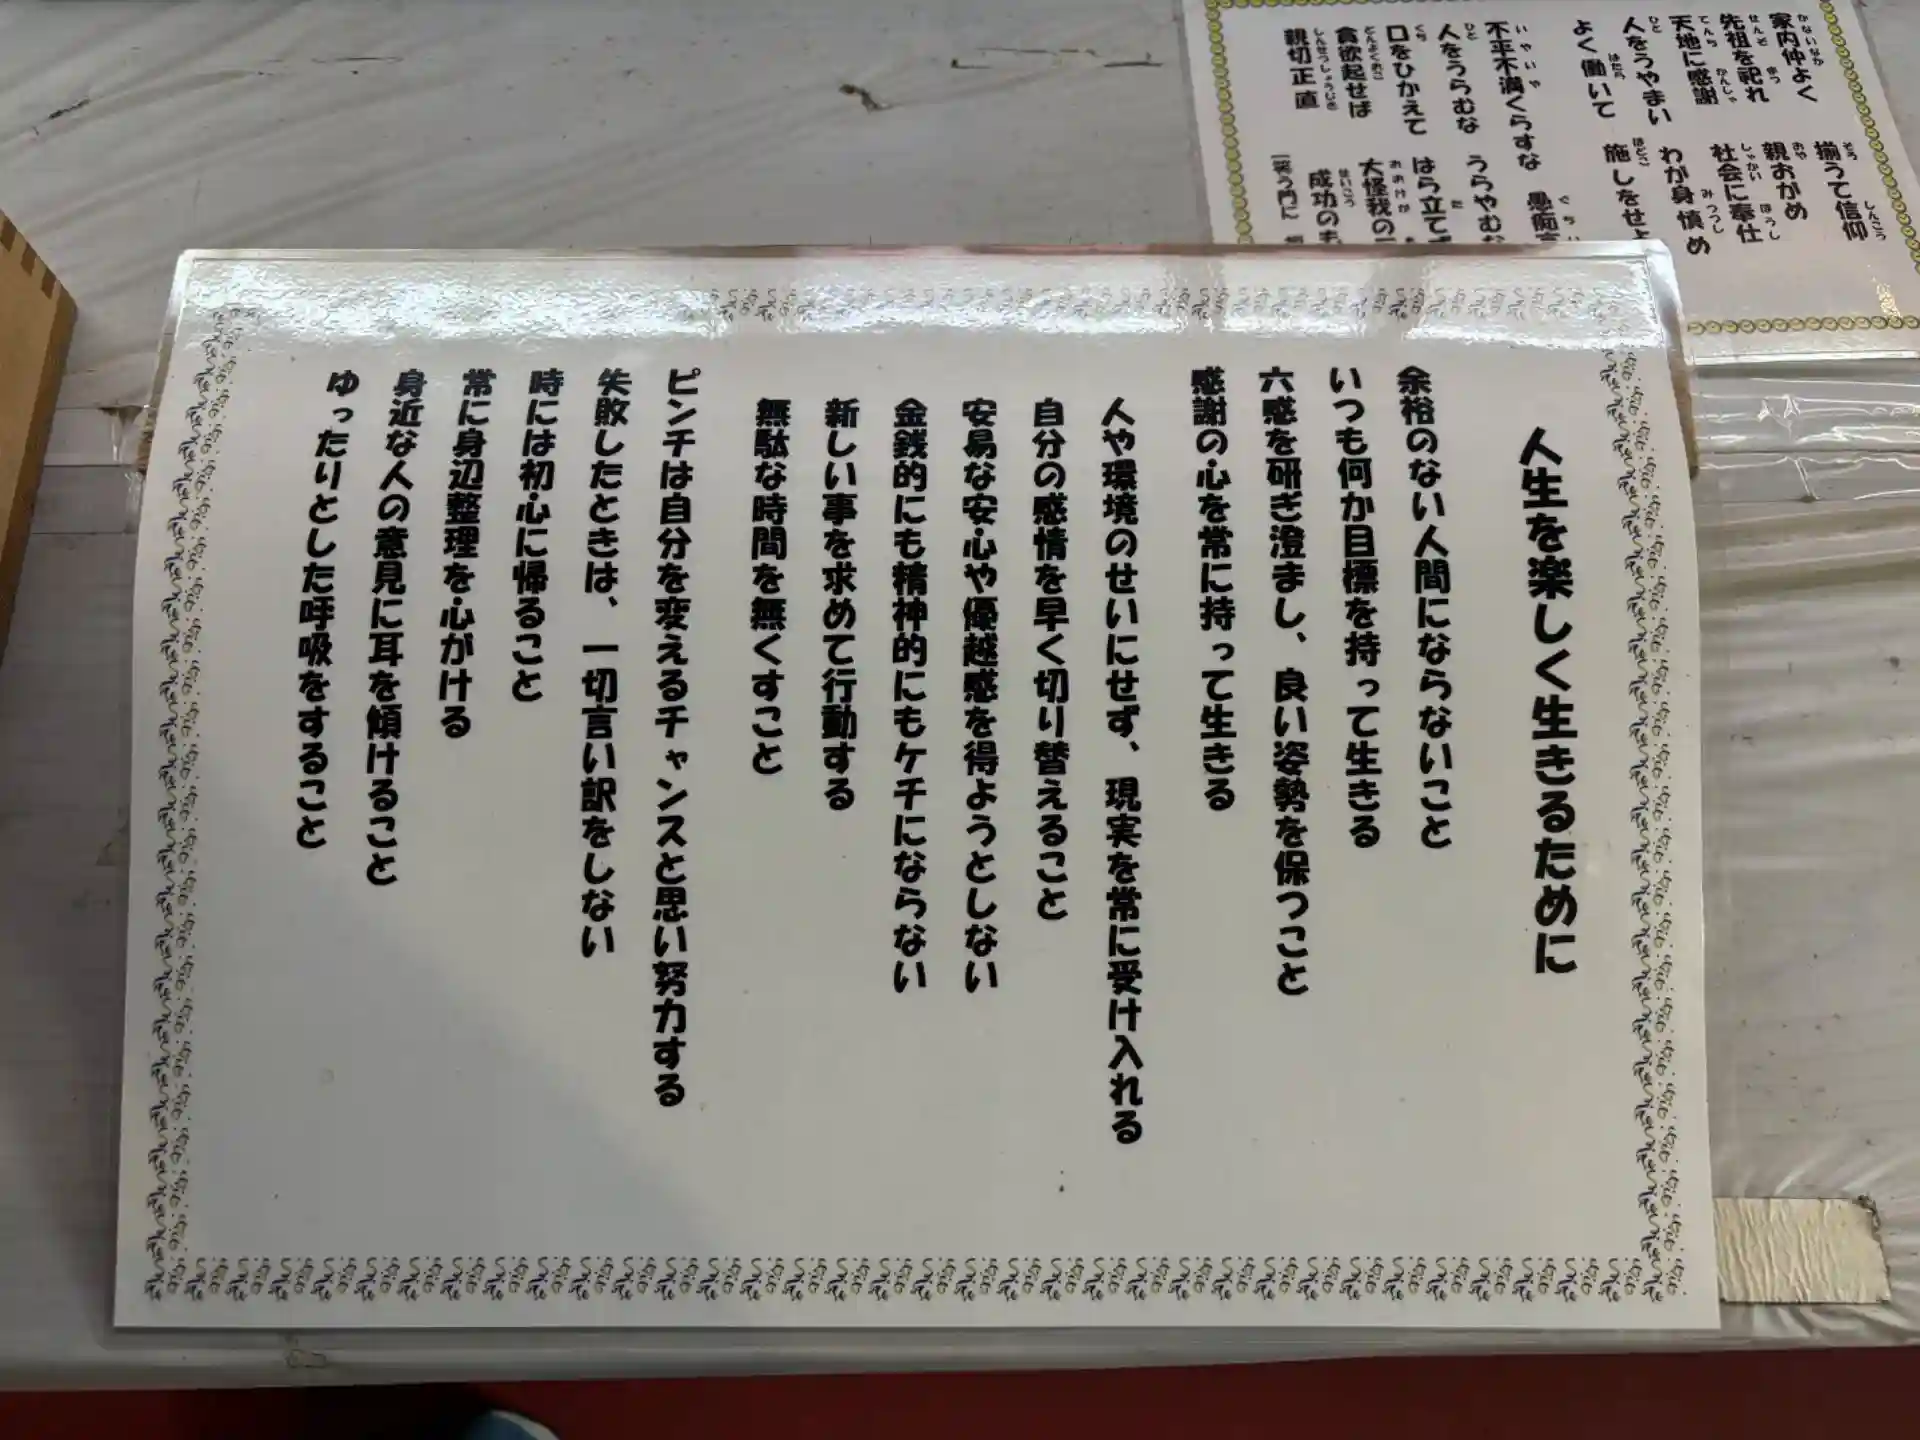 人生を楽しく生きるために
余裕のない人間にならないこと
いつも何か目標を持って生きる
六感を研ぎ澄まし、良い姿勢を保つこと
感謝の心を常に持って生きる
人や環境のせいにせず、現実を常に受け入れる
自分の感情を早く切り替えること
安易な安心や優越感を得ようとしない
金銭的にも精神的にもケチにならない
新しい事を求めて行動する
無駄な時間を無くすこと
ピンチは自分を変えるチャンスと思い努力する
失敗したときは、一切言い訳をしない
時には初心に帰ること
常に身辺整理を心がける
身近な人の意見に耳を傾けること
ゆったりとした呼吸をすること
家内仲よく 揃うて信仰
先祖を祀れ 親おがめ
天地に感謝 社会に奉仕
人をうやまい わが身慎め
よく働いて 施しをせよ
不平不満くらすな 愚痴言
人をうらむな うらやむな
口をひかえて はら立てず
貪欲起せば 大怪我の
親切正直 成功のも
笑う門に